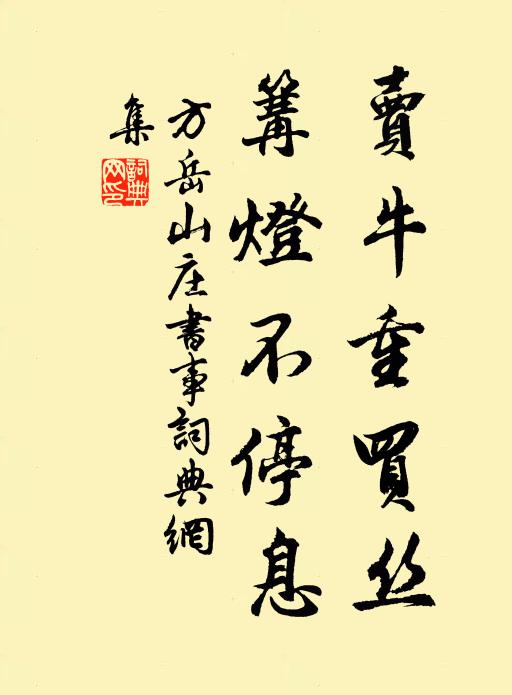 賣牛重買丝
篝燈不停息
方岳山庄書事詞典網
集
詞典
网印